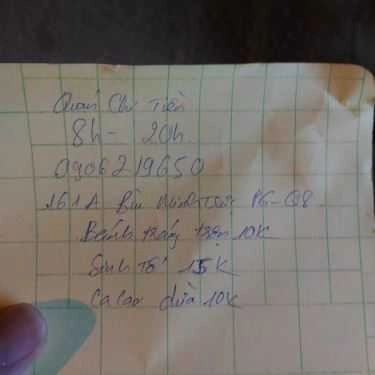 Quán Chị Tiên
8h - 20h
0906219650
161A Bùi Minh Trực P6-Q8
Bánh tráng trộn 10K
Sinh Tố 15K
Ca Cao dừa 10K